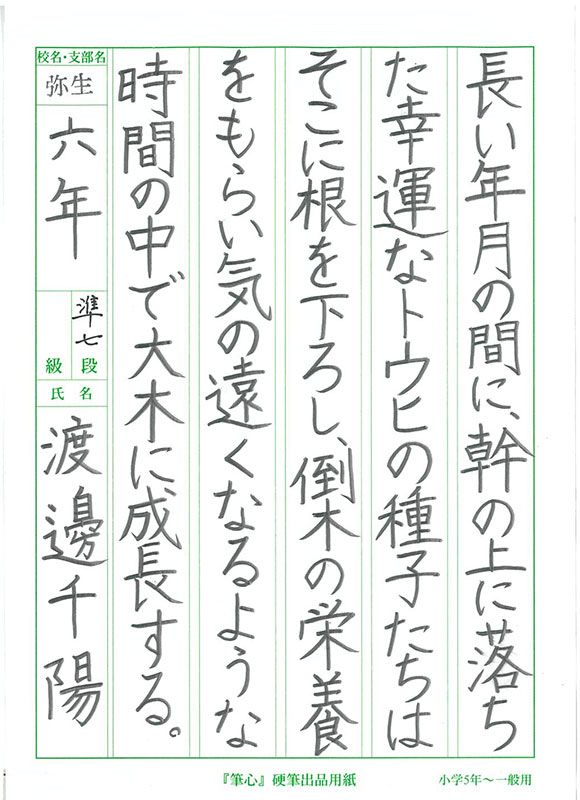 長い年月の間に、幹の上に落ち
た幸運なトウヒの種子たちは
そこに根を下ろし、倒木の栄養
をもらい気の遠くなるような
時間の中で大木に成長する。
校名・支部名
弥生
六年
準七
段
級
氏名
渡邊千陽
『筆心』硬筆出品用紙
小学5年〜一般用